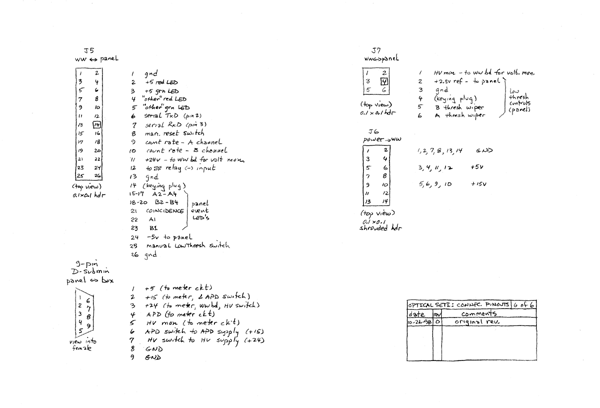 J5
ww ↔ panel
1 2
3 4
5 6
7 8
9 10
11 12
13 14
15 16
17 18
19 20
21 22
23 24
25 26
(top view)
0.1x0.1 hdr
1 gnd
2 +5 red LED
3 +5 grn LED
4 "other" red LED
5 "other" grn LED
6 serial TxD (pin 2)
7 serial RxD (pin 3)
8 man. reset switch
9 count rate - A channel
10 count rate - B channel
11 +24V - to ww bd for volt mon
12 to relay (-) input
13 gnd
14 (keying plug)
15-17 A2-A4
18-20 B2-B4
21 COINCIDENCE
22 A1
23 B1
panel
event
LED's
24 -5v to panel
25 manual Low Thresh switch
26 gnd
9-pin
D-submin
panel ↔ box
1 6
2 7
3 8
4 9
5
view into
female
1 +5 (to meter ckt)
2 +15 (to meter, & APD switch)
3 +24 (to meter, ww bd, HV switch)
4 APD (to meter ckt)
5 HV mon (to meter ckt)
6 APD switch to APD supply (+15)
7 HV switch to HV supply (+24)
8 GND
9 GND
J7
ww↔panel
1 2
3 4
5 6
(top view)
0.1x0.1 hdr
1 HV mon - to ww bd for volt. mon
2 +2.5V ref - to panel
3 gnd
4 (keying plug)
5 B thresh wiper
6 A thresh wiper
Low
thresh
controls
(panel)
J6
power→ww
1 2
3 4
5 6
7 8
9 10
11 12
13 14
(top view)
0.1x0.1
shrouded hdr
1,2,7,8,13,14 GND
3,4,11,12 +5V
5,6,9,10 +15V
OPTICAL SETI: CONNEC. PINOUTS 6 of 6
date rev comments
10-26-98 0 original rev.